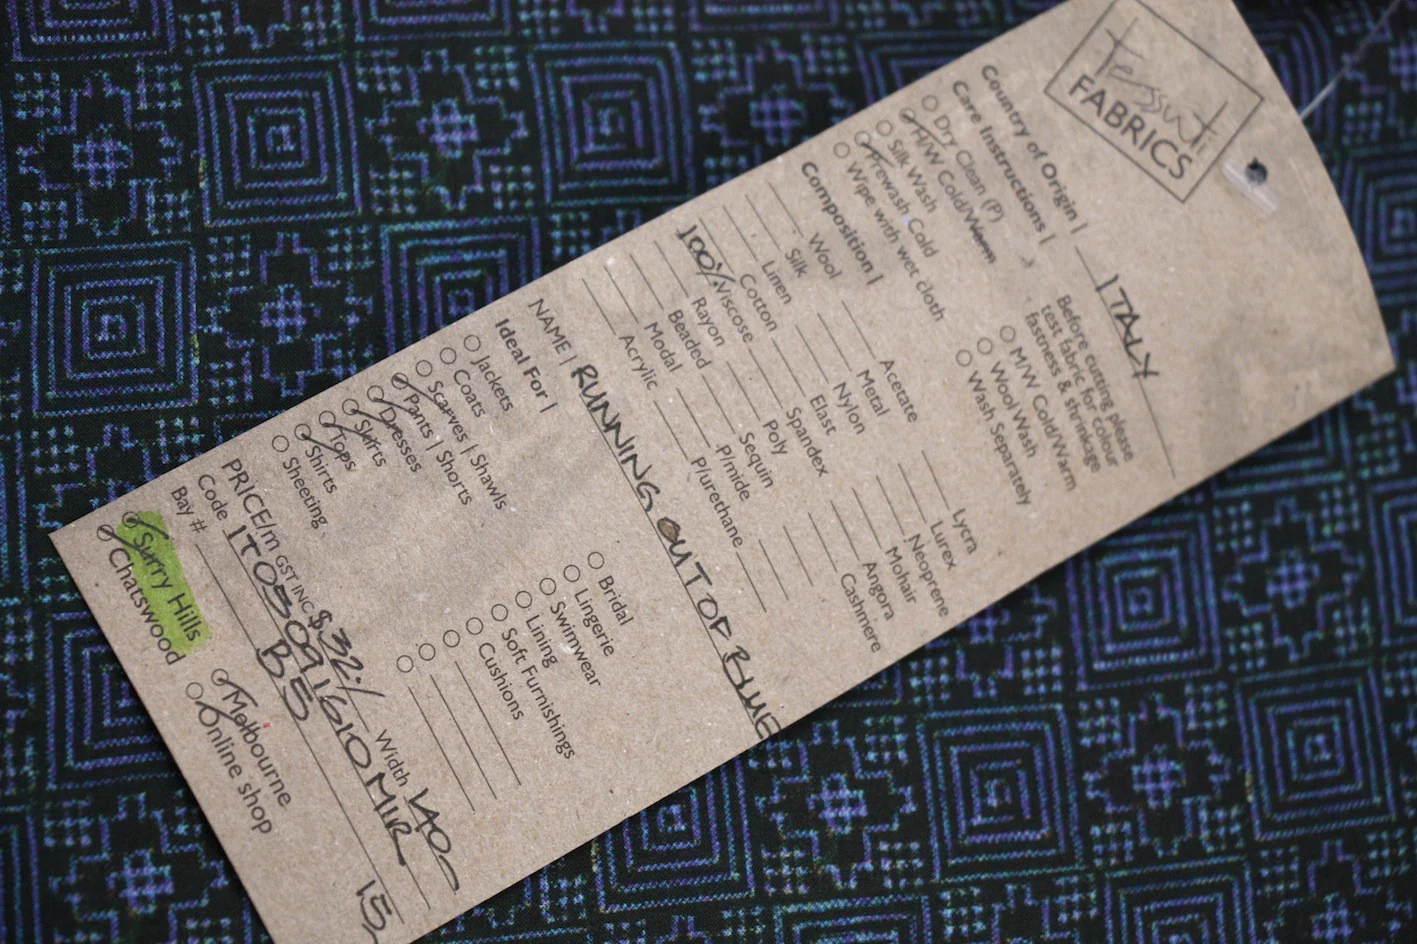 tessuti
FABRICS
Country of Origin | ITALY
Care Instructions |
Dry Clean (P)
H/W Cold/Warm
Silk Wash
Prewash Cold
Wipe with wet cloth
Before cutting please
test fabric for colour
fastness & shrinkage
M/W Cold/Warm
Wool Wash
Wash Separately
Composition |
Wool
Silk
Linen
Cotton
100% Viscose
Rayon
Beaded
Modal
Acrylic
Acetate
Metal
Nylon
Elast
Spandex
Poly
Sequin
P/mide
P/urethane
Lycra
Lurex
Neoprene
Mohair
Angora
Cashmere
NAME | RUNNING OUT OF BLUE
Ideal For |
Jackets
Coats
Scarves | Shawls
Pants | Shorts
Dresses
Skirts
Tops
Shirts
Sheeting
Bridal
Lingerie
Swimwear
Lining
Soft Furnishings
Cushions
PRICE/m GST INC $32./ Width 140
Code ITO30916IOMIR
Bay # B5 15
Surry Hills
Chatswood
Melbourne
Online shop